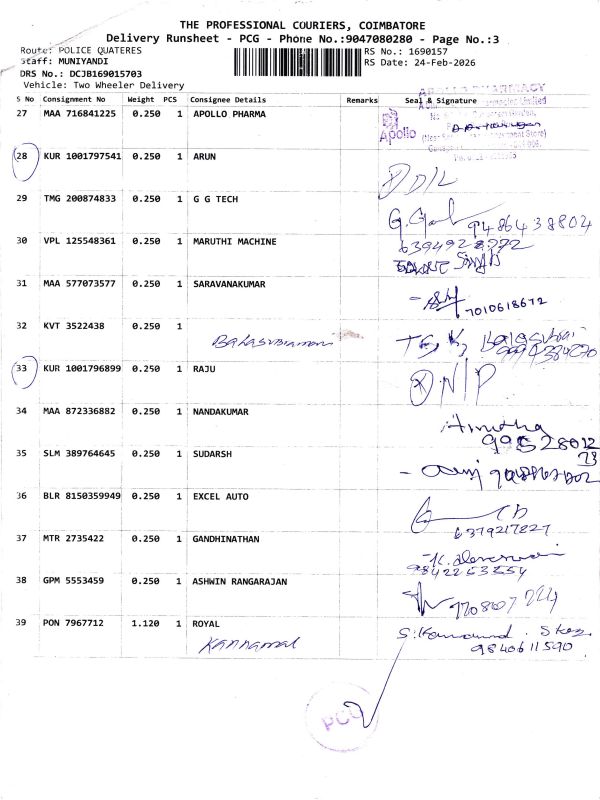 THE PROFESSIONAL COURIERS, COIMBATORE
Delivery Runsheet - PCG - Phone No.:9047080280 - Page No.:3
Route: POLICE QUATERES RS No.: 1690157
Staff: MUNIYANDI RS Date: 24-Feb-2026
DRS No.: DCJB169015703
Vehicle: Two Wheeler Delivery
S No Consignment No Weight PCS Consignee Details Remarks Seal & Signature
APOLLO PHARMACY
27 MAA 716841225 0.250 1 APOLLO PHARMA
Apollo
28 KUR 1001797541 0.250 1 ARUN
D/L
29 TMG 200874833 0.250 1 G G TECH
9486438804
30 VPL 125548361 0.250 1 MARUTHI MACHINE
31 MAA 577073577 0.250 1 SARAVANAKUMAR
7010618672
32 KVT 3522438 0.250 1
Balasubramani
33 KUR 1001796899 0.250 1 RAJU
N/P
34 MAA 872336882 0.250 1 NANDAKUMAR
Amutha
35 SLM 389764645 0.250 1 SUDARSH
36 BLR 8150359949 0.250 1 EXCEL AUTO
6379217827
37 MTR 2735422 0.250 1 GANDHINATHAN
38 GPM 5553459 0.250 1 ASHWIN RANGARAJAN
39 PON 7967712 1.120 1 ROYAL
Kannamal
9840611590
PCG